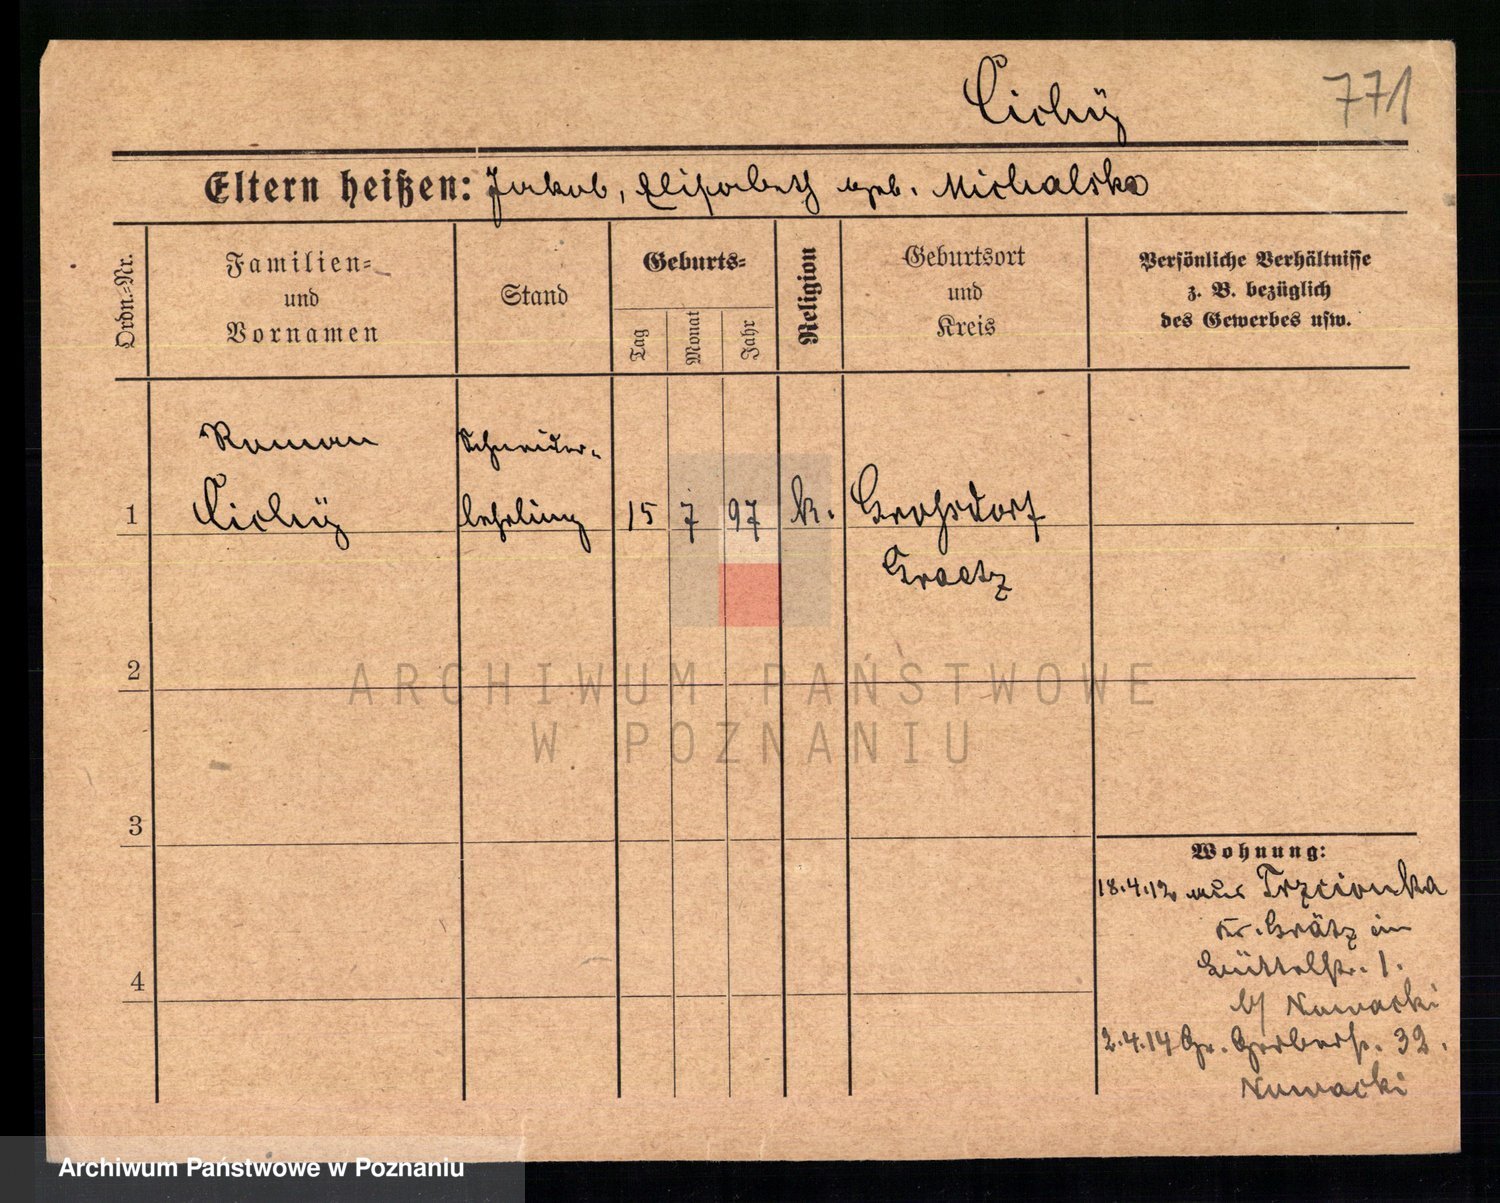 Cichÿ
771
Eltern heißen: Jakob, Elisabeth geb. Michalska
Ordn.-Nr.
Familien-
und
Vornamen
Stand
Geburts-
Tag
Monat
Jahr
Religion
Geburtsort
und
Kreis
Persönliche Verhältnisse
z. B. bezüglich
des Gewerbes usw.
Roman
Schneider-
1
Cichÿ
lehrling
15
7
97
k.
Grofsdorf
Graetz
2
3
4
Wohnung:
18.4.12 aus Trzcionka
Kr. Grätz in
Büttelstr. 1.
b/ Nowacki
2.4.14 Gr. Gerberstr. 32.
Nowacki
ARCHIWUM PAŃSTWOWE
W POZNANIU
Archiwum Państwowe w Poznaniu